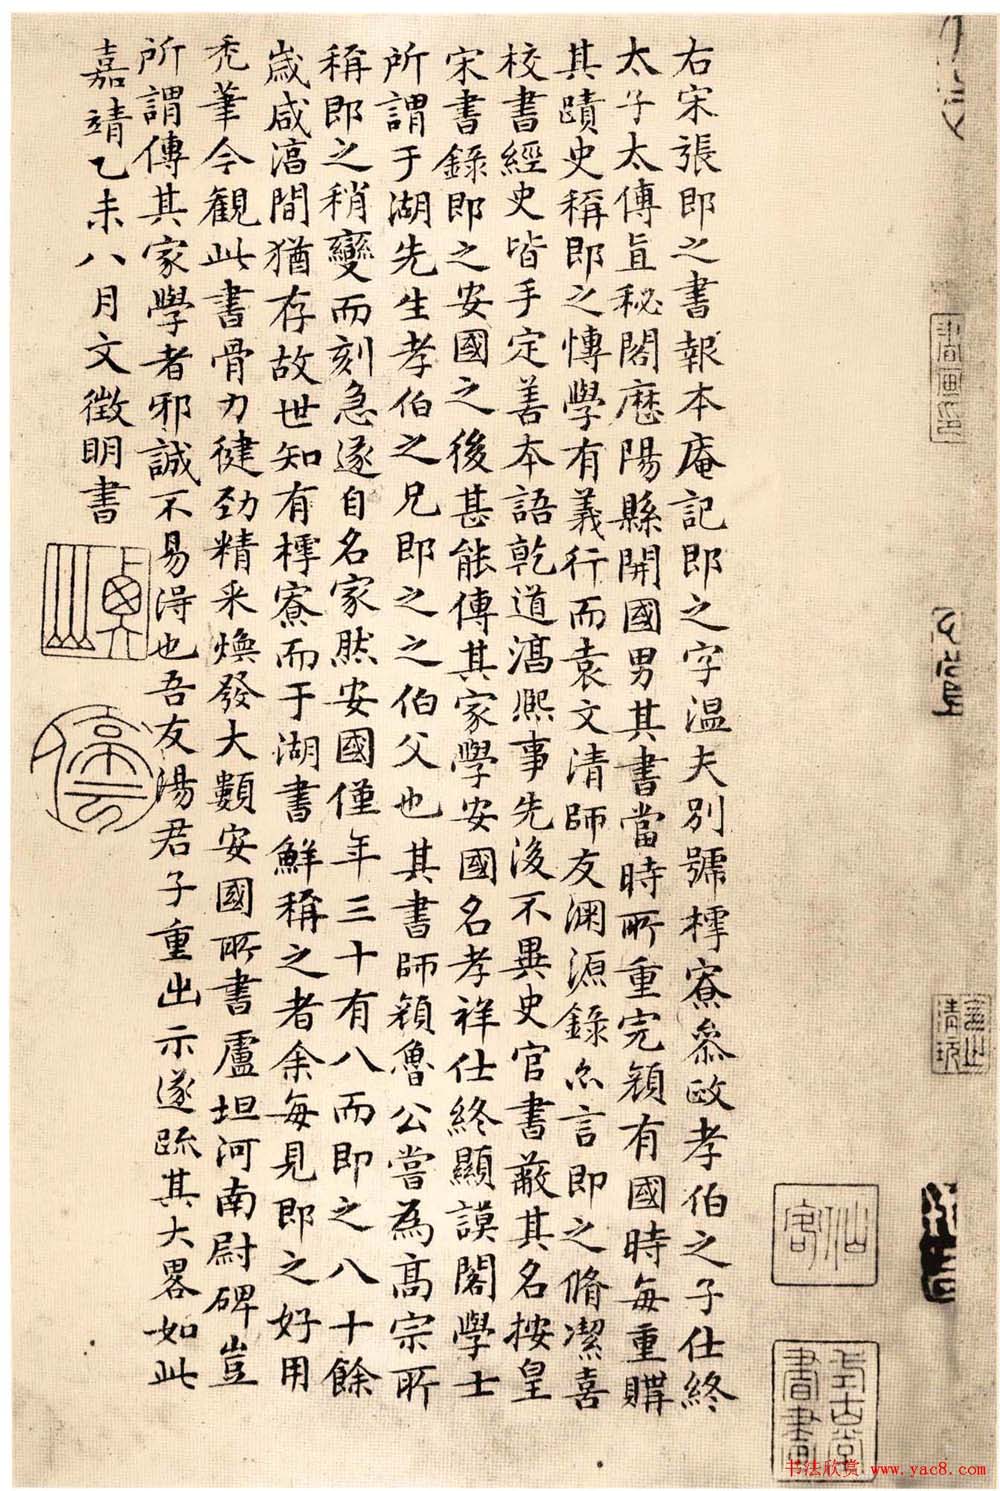 右宋張即之書報本庵記即之字温夫別號樗寮叅政孝伯之子仕終
太子太傅直秘閣歴陽縣開國男其書當時所重完顔有國時每重購
其蹟史稱即之愽學有義行而袁文清師友淵源錄亦言即之脩潔喜
校書經史皆手定善本語乾道淳熙事先後不異史官書蔽其名按皇
宋書錄即之安國之後甚能傳其家學安國名孝祥仕終顯謨閣學士
所謂于湖先生孝伯之兄即之之伯父也其書師顔魯公嘗為高宗所
稱即之稍變而刻急遂自名家然安國僅年三十有八而即之八十餘
歲咸淳間猶存故世知有樗寮而于湖書鮮稱之者余每見即之好用
禿筆今觀此書骨力健勁精采煥發大類安國所書盧坦河南尉碑豈
所謂傳其家學者邪誠不易得也吾友湯君子重出示遂疏其大畧如此
嘉靖乙未八月文徵明書
書畫
清玩
仙客
式古堂書畫
停雲
书法欣赏 www.yac8.com